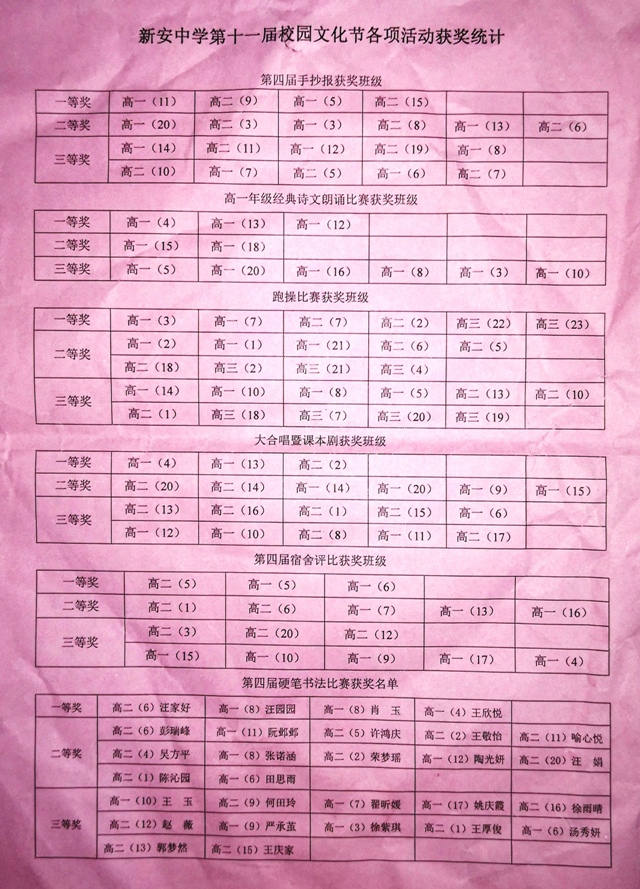 新安中学第十一届校园文化节各项活动获奖统计
第四届手抄报获奖班级
一等奖 高一（11） 高二（9） 高一（5） 高二（15）
二等奖 高一（20） 高二（3） 高一（3） 高二（8） 高一（13） 高二（6）
三等奖 高一（14） 高二（11） 高一（12） 高二（19） 高一（8）
高二（10） 高一（7） 高二（5） 高一（6） 高二（7）
高一年级经典诗文朗诵比赛获奖班级
一等奖 高一（4） 高一（13） 高一（12）
二等奖 高一（15） 高一（18）
三等奖 高一（5） 高一（20） 高一（16） 高一（8） 高一（3） 高一（10）
跑操比赛获奖班级
一等奖 高一（3） 高一（7） 高二（7） 高二（2） 高三（22） 高三（23）
二等奖 高一（2） 高一（1） 高一（21） 高二（6） 高二（5）
高二（18） 高三（2） 高三（21） 高三（4）
三等奖 高一（14） 高一（10） 高一（8） 高一（5） 高二（13） 高二（10）
高二（1） 高三（18） 高三（7） 高三（20） 高三（19）
大合唱暨课本剧获奖班级
一等奖 高一（4） 高一（13） 高二（2）
二等奖 高二（20） 高二（14） 高一（14） 高一（20） 高一（9） 高一（15）
三等奖 高二（13） 高二（16） 高二（1） 高二（15） 高一（6）
高一（12） 高一（10） 高二（8） 高一（11） 高二（17）
第四届宿舍评比获奖班级
一等奖 高二（5） 高一（5） 高一（6）
二等奖 高二（1） 高二（6） 高一（7） 高一（13） 高一（16）
三等奖 高二（3） 高二（20） 高二（12）
高一（15） 高一（10） 高一（9） 高一（17） 高一（4）
第四届硬笔书法比赛获奖名单
一等奖 高二（6）汪家好 高一（8）汪园园 高一（8）肖 玉 高一（4）王欣悦
二等奖 高二（6）彭瑞峰 高一（11）阮邺邺 高二（5）许鸿庆 高二（2）王敬怡 高二（11）喻心悦
高二（4）吴方平 高一（8）张诺涵 高二（2）荣梦瑶 高一（12）陶光妍 高二（20）汪 娟
高二（1）陈沁园 高一（6）田思雨
三等奖 高一（10）王 玉 高二（9）何田玲 高一（7）翟昕媛 高一（17）姚庆霞 高二（16）徐雨晴
高二（12）赵 薇 高一（9）严承茧 高一（3）徐紫琪 高二（1）王厚俊 高一（6）汤秀妍
高二（13）郭梦然 高二（15）王庆家